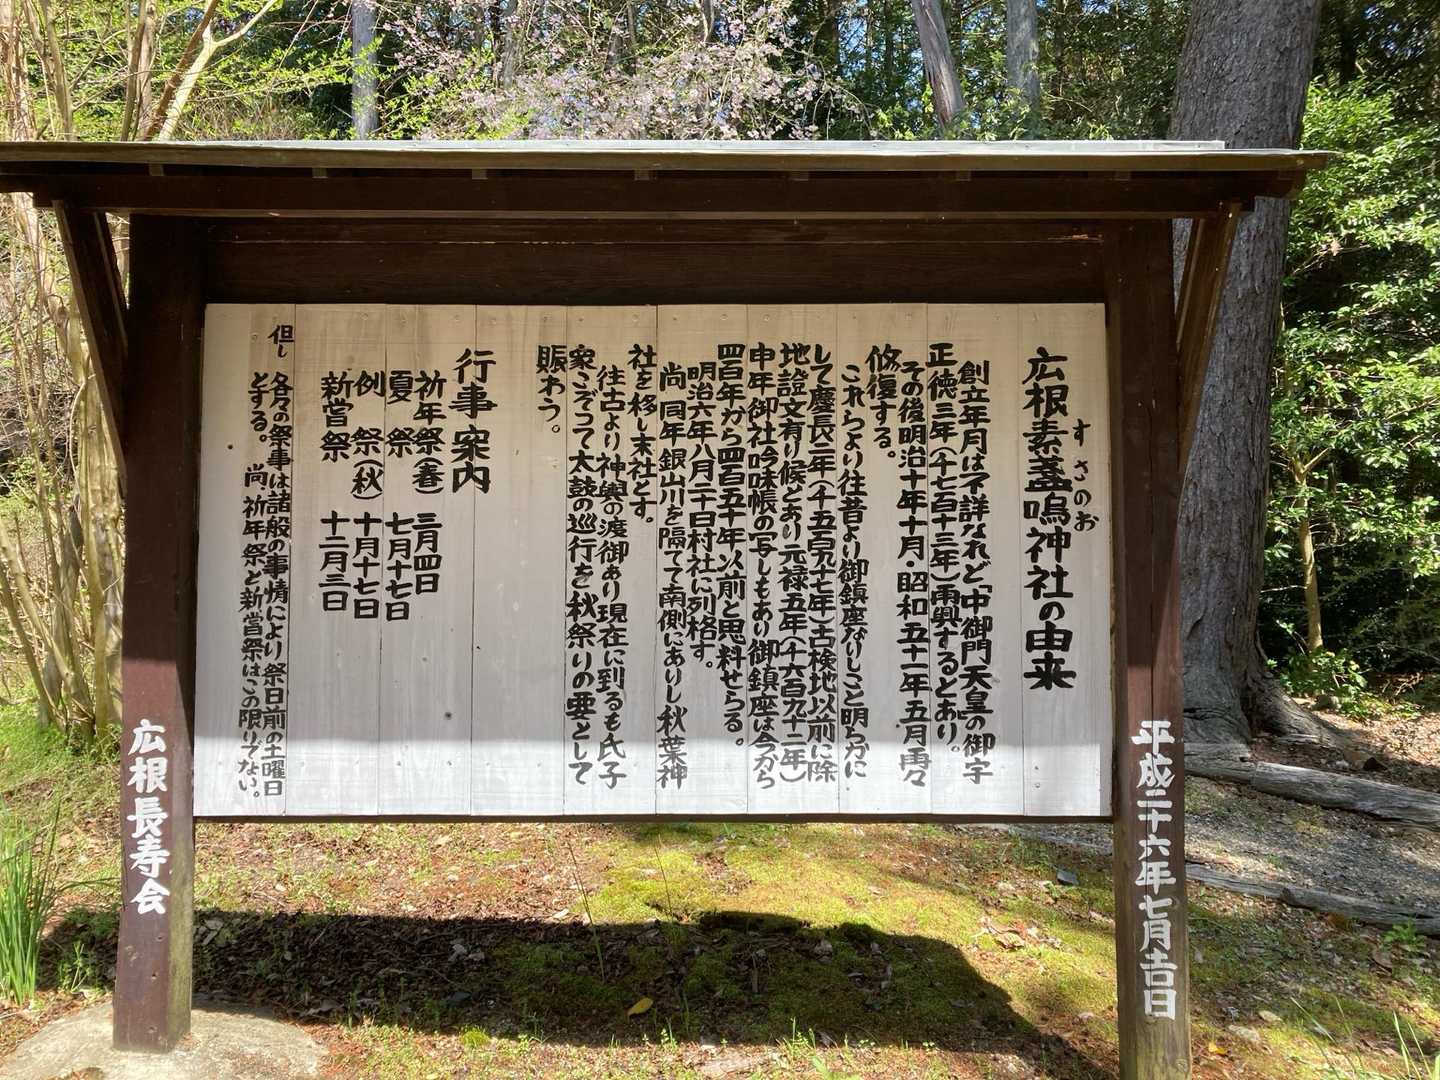 広根素盞嗚神社の由来
すさのお
創立年月は不詳なれど「中御門天皇」の御宇
正徳三年(千七百十三年)再興するとあり。
その後明治十年十月・昭和五十一年五月再々
修復する。
これらより往昔より御鎮座なりしこと明らかに
して慶長二年(千五百九七年)古検地以前に除
地證文有り候とあり元禄五年(千六百九十二年)
申年御社吟味帳の写しもあり御鎮座は今から
四百年から四百五十年以前と思料せらる。
明治六年八月二十日村社に列格す。
尚同年銀山川を隔てて南側にありし秋葉神
社を移し末社とす。
往古より神輿の渡御あり現在に到るも氏子
衆こぞって太鼓の巡行を秋祭りの要として
賑わう。
行事案内
祈年祭(春) 三月四日
夏祭 七月十七日
例祭(秋) 十月十七日
新嘗祭 十二月三日
但し 各々の祭事は諸般の事情により祭日前の土曜日
とする。尚祈年祭と新嘗祭はこの限りでない。
平成二十六年七月吉日
広根長寿会